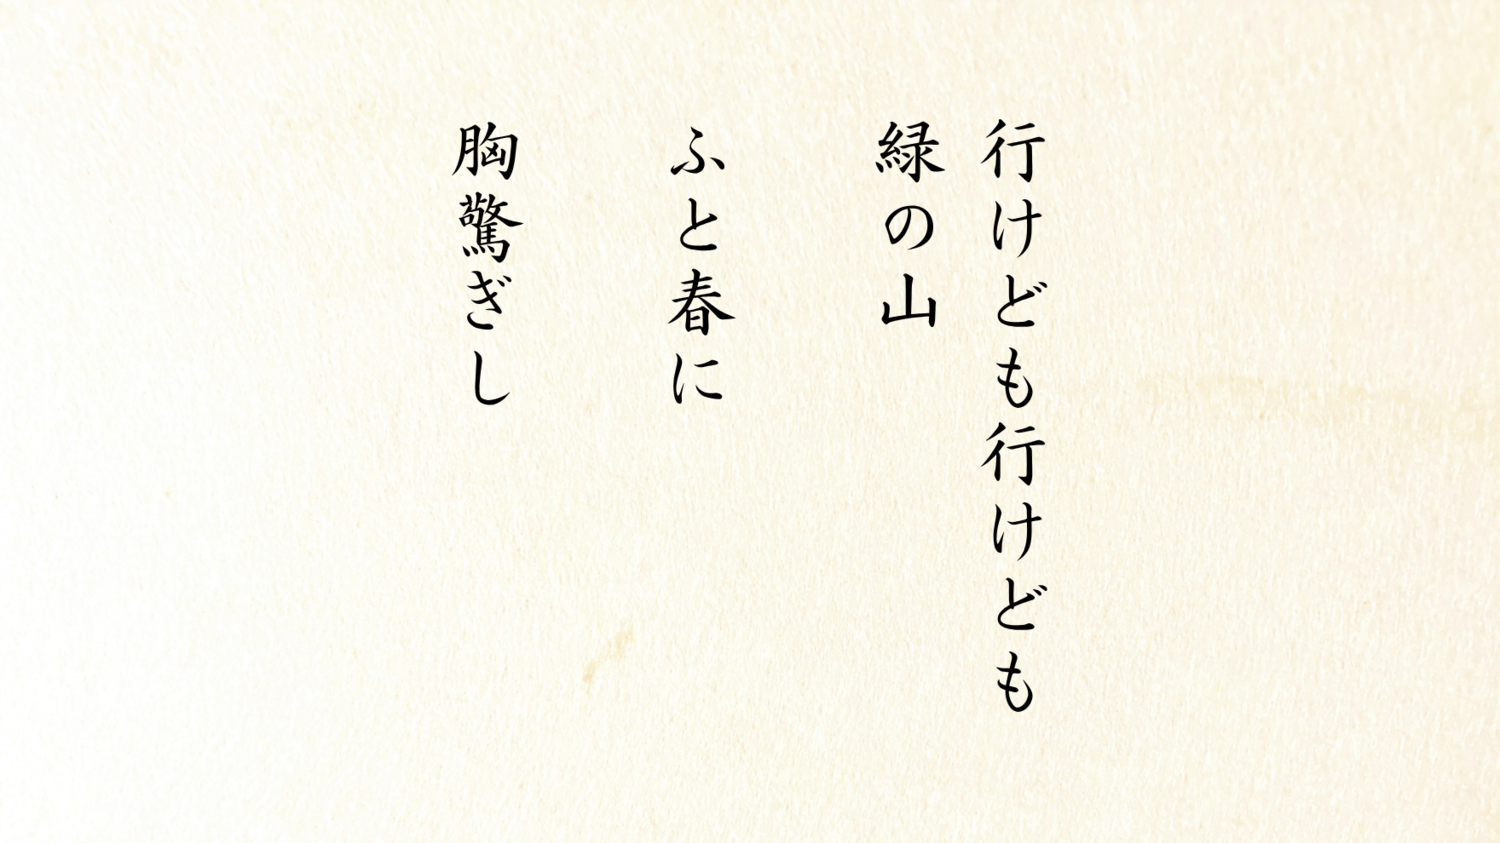 行けども行けども
緑の山
ふと春に
胸驚ぎし